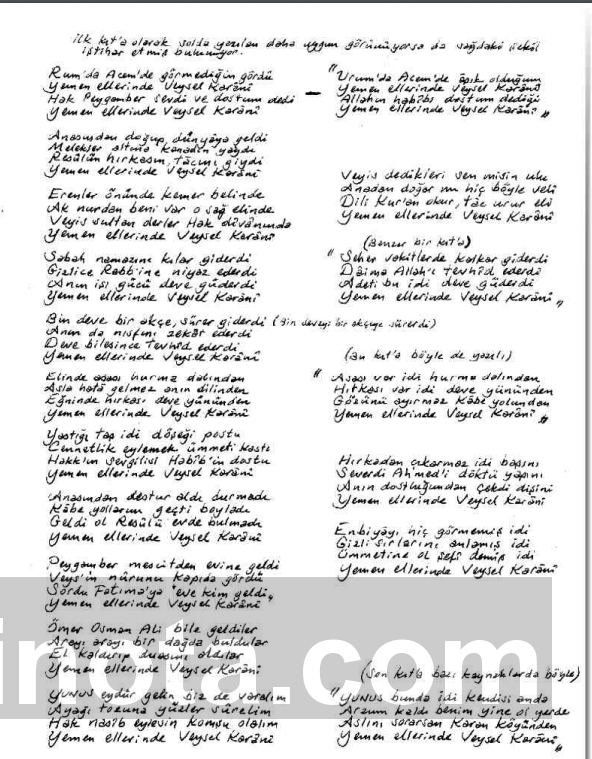 ilk kıt'a olarak solda yazılan daha uygun görünüyorsa da sağdaki şekil
iştihar etmiş bulunuyor.
Rum'da Acem'de görmediğin gördü
Yemen ellerinde Veysel Karânî
Hak Peygamber sevdi ve dostum dedi
Yemen ellerinde Veysel Karânî
Anasından doğup dünyaya geldi
Melekler altına kanadın yaydı
Resûlün hırkasın, tâcını giydi
Yemen ellerinde Veysel Karânî
Erenler önünde kemer belinde
Ak nurdan beni var o sağ elinde
Veyis sultan derler Hak dîvânında
Yemen ellerinde Veysel Karânî
Sabah namazını kılar giderdi
Gizlice Rabb'ine niyaz ederdi
Anın işi gücü deve güderdi
Yemen ellerinde Veysel Karânî
Bin deve bir akçe, sürer giderdi (Bin deveyi bir akçeye sürerdi)
Anın da nısfını zekât ederdi
Deve bilesince tevhîd ederdi
Yemen ellerinde Veysel Karânî
Elinde asası hurma dalından
Asla hatâ gelmez anın dilinden
Eğninde hırkası deve yününden
Yemen ellerinde Veysel Karânî
Yastığı taş idi döşeği postu
Cennetlik eylemek ümmeti kastı
Hakk'ın sevgilisi Habîb'in dostu
Yemen ellerinde Veysel Karânî
Anasından destur aldı durmadı
Kâbe yolların geçti boyladı
Geldi ol Resûlü evde bulmadı
Yemen ellerinde Veysel Karânî
Peygamber mescitden evine geldi
Veys'in nûrunu kapıda gördü
Sordu Fatıma'ya "eve kim geldi"
Yemen ellerinde Veysel Karânî
Ömer Osman Ali bile geldiler
Arayı arayı bir dağda buldular
El kaldırıp duasını aldılar
Yemen ellerinde Veysel Karânî
YUNUS eydür gelin biz de varalım
Ayağı tozuna yüzler sürelim
Hak nasîb eylesin komşu olalım
Yemen ellerinde Veysel Karânî
- "Urum'da Acem'de âşık olduğum
Yemen ellerinde Veysel Karânî
Allahın habîbi dostum dediği
Yemen ellerinde Veysel Karânî"
Veyis dedikleri sen misin ulu
Anadan doğar mı hiç böyle veli
Dili Kur'an okur, tâc urur eli
Yemen ellerinde Veysel Karânî
(Benzer bir kıt'a)
"Seher vakitlerde kalkar giderdi
Dâima Allah'ı tevhîd ederdi
Âdeti bu idi deve güderdi
Yemen ellerinde Veysel Karânî"
(Bu kıt'a böyle de yazılı)
"Asası var idi hurma dalından
Hırkası var idi deve yününden
Gözünü ayırmaz Kâbe yolundan
Yemen ellerinde Veysel Karânî"
Hırkadan çıkarmaz idi başını
Severdi Ahmed'i döktü yaşını
Anın dostluğundan çekdi dişini
Yemen ellerinde Veysel Karânî
Enbiyâyı hiç görmemiş idi
Gizli sırlarını anlamış idi
Ümmetine ol şefi demiş idi
Yemen ellerinde Veysel Karânî
(Son kıt'a bazı kaynaklarda böyle)
"YUNUS bunda idi kendisi anda
Arzum kaldı benim yine ol yerde
Aslını sorarsan Karan köyünden
Yemen ellerinde Veysel Karânî"
inota.com